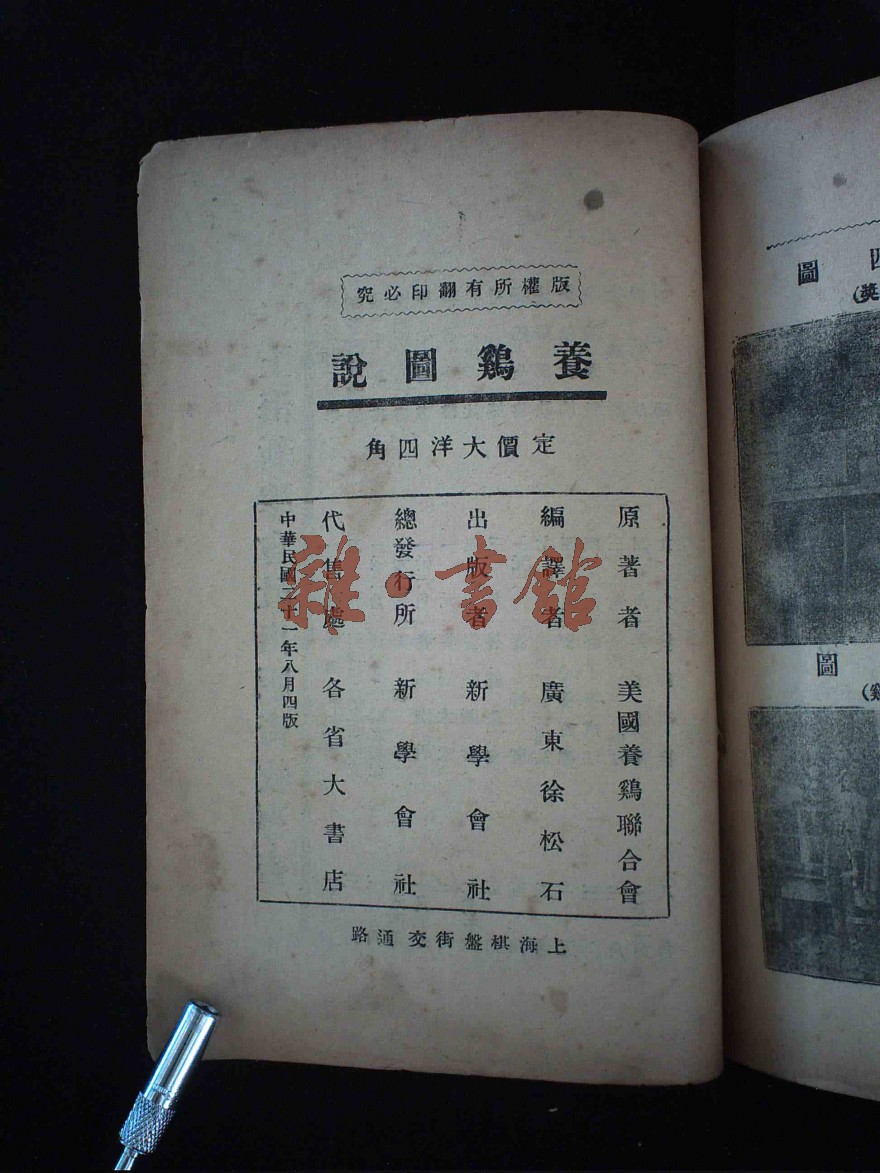 版權所有翻印必究
養鷄圖說
定價大洋四角
原著者 美國養鷄聯合會
編譯者 廣東徐松石
出版者 新學會社
總發行所 新學會社
代售處 各省大書店
中華民國二十一年八月四版
上海棋盤街交通路
雜·書館
圖
圖